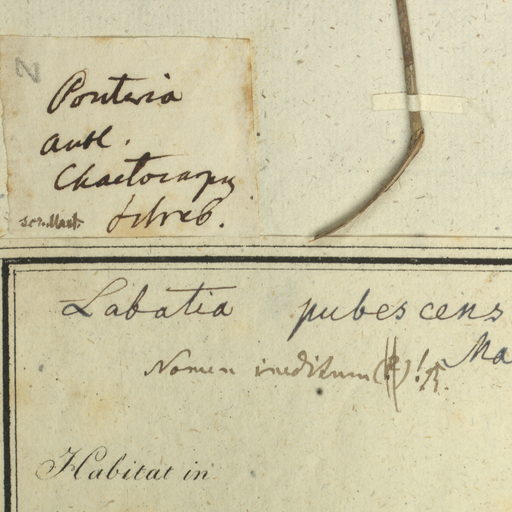 Z
Pouteria
Aubl.
Chaetocarpus
Schreb.
scr. Mart.
Labatia pubescens
Ma
Nomen ineditum (?)!
Habitat in